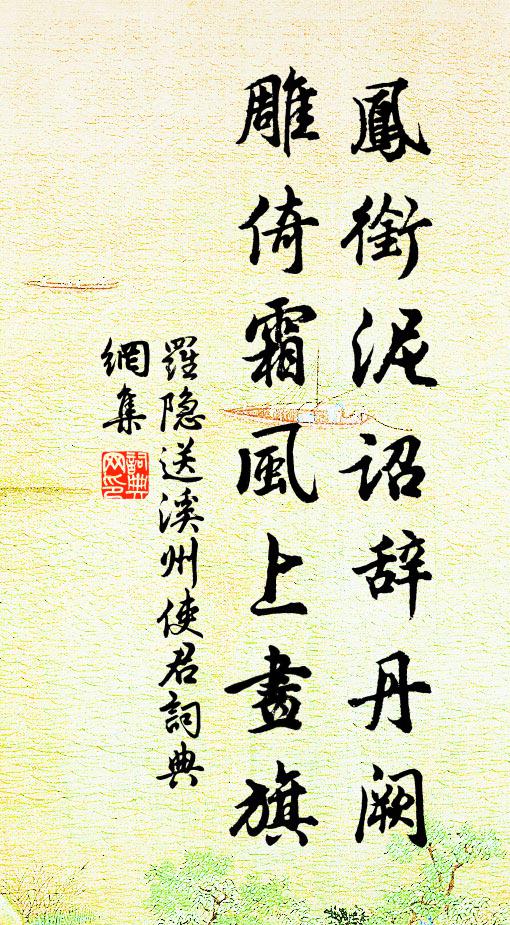 鳳銜泥詔辞丹闕
雕倚霜風上畫旗
羅隐送溪州使君詞典
網集
詞典
网印